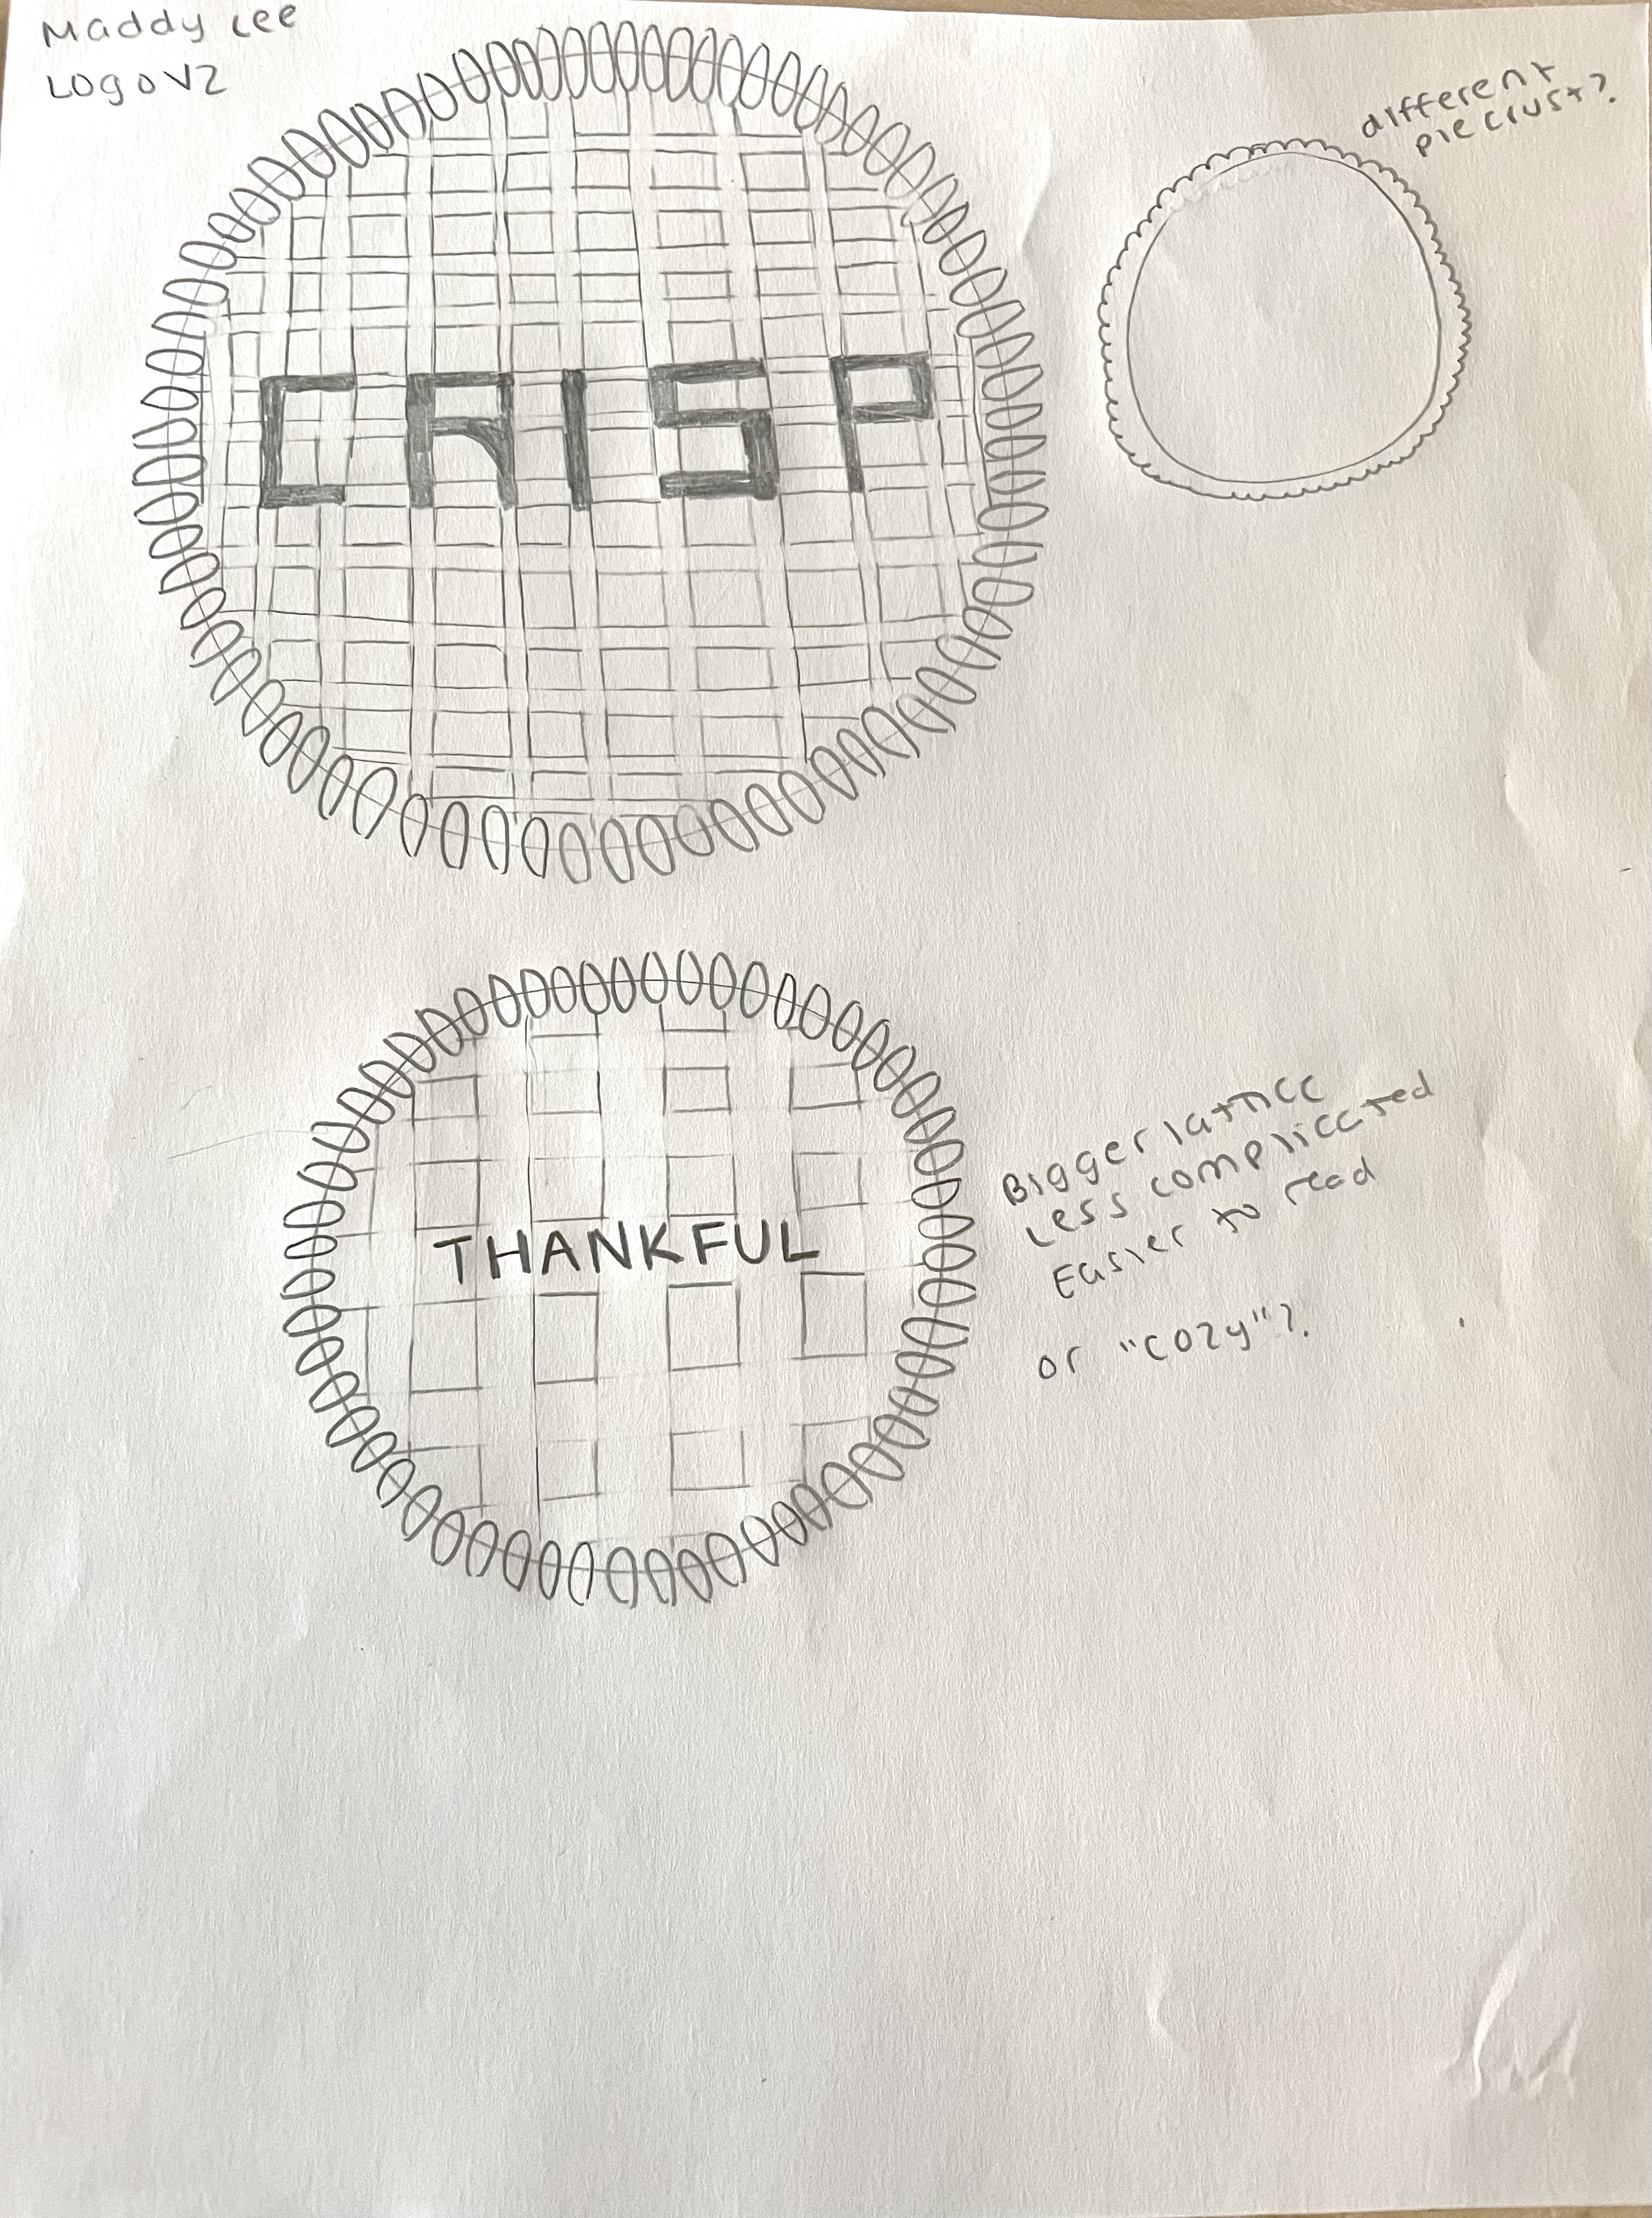 Maddy Lee
Logo V2
different
pie crust?
CRISP
THANKFUL
Bigger lattice
Less complicated
Easier to read
or "cozy"?